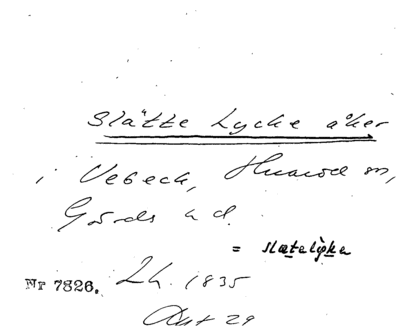 Slätte Lycke åker
i Vebeck, Huarod sn,
Gärds hd.
= slætelykə
Nr 7826. Lh. 1835
Akt 29